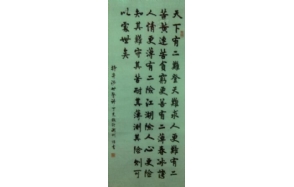 天下有二難登天難求人更難有二
苦黃連苦貧窮更苦有二薄春冰薄
人情更薄有二險江湖險人心更險
知其難守其苦耐其薄測其險則可
以處世矣